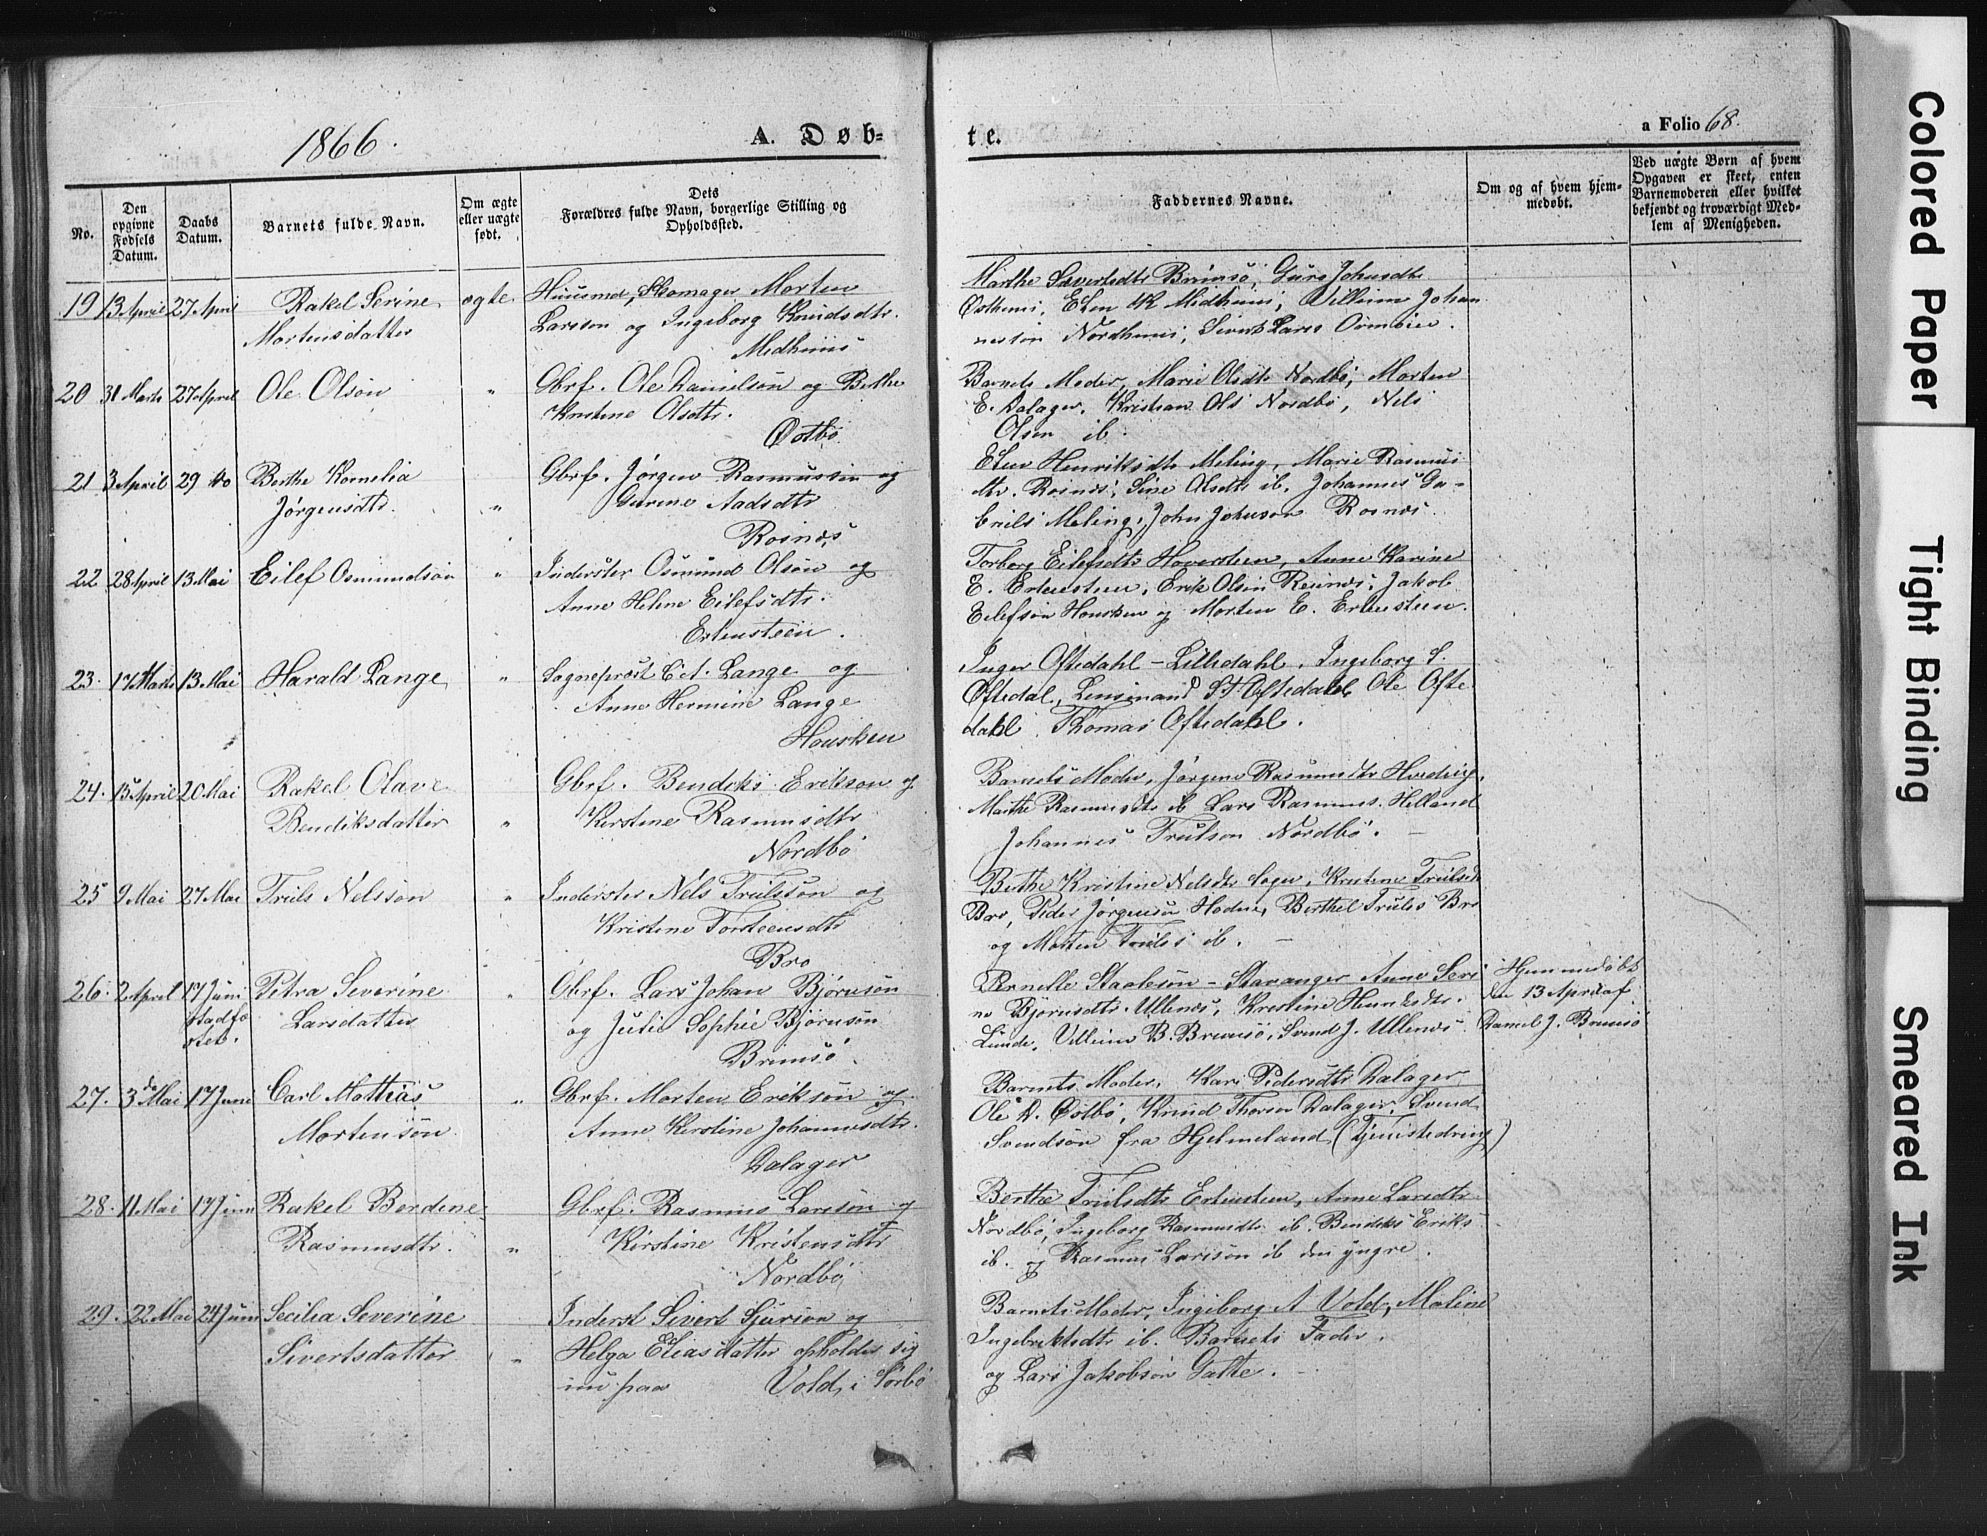 1866.
A. Døb-
te.
a Folio 68.
No.
Den opgivne Fødsels Datum.
Daabs Datum.
Barnets fulde Navn.
Om ægte eller uægte født.
Dets Forældres fulde Navn, borgerlige Stilling og Opholdssted.
Faddernes Navne.
Om og af hvem hjem-
medøbt.
Ved uægte Børn af hvem
Opgaven er skeet, enten
Barnemoderen eller hvilket
bekjendt og troværdigt Med-
lem af Menigheden.
19 13 April 27 April Rakel Serine ægte
Mortensdatter
Huusmd, Skomager Morten
Larson og Ingeborg Knudsdtr.
Medhuus
Marthe Sivertsdtr Brimsö, Guro Johnsdtr
Østhuus, Elen K Midhuus, Villum Johan
nesson Nordhuus, Sivert Lars
20 31 Marts 27 April Ole Olson "
Gbrf. Ole Danielson og Berthe
Kristene Olsdtr.
Östbö
Barnets Moder, Marie Olsdtr Nordbö, Morten
E. Dalager, Kristian Ols Nordbö, Nels
Olsen ib.
21 3 April 29 do Berthe Kornelia
Jörgensdtr. "
Gbrf. Jörgen Rasmusson og
Gurene Aadsdtr
Rosnæs
Elen Henriksdtr Meling, Marie Rasmus
dtr. Rosnæs, Sine Olsdtr ib. Johannes Ga-
briels Meling, John Johnson Rosnæs.
22 28 April 13 Mai Eilef Osmundsön "
Inderster Osmund Olsön og
Anne Helene Eilefsdtr.
Erlensteen.
Torborg Eilefsdtr Hoverstein, Anne Karine
E. Erlensteen, Erik Olsön Reinæs, Jakob
Eilefson Housken og Morten E. Erlensteen.
23. 17 Marts 13 Mai Harald Lange "
Sognepræst C. A. Lange og
Anne Hermine Lange
Housken
Inger Oftedahl - Lilledahl, Ingeborg S.
Oftedal, Lensmand S. T. Oftedahl, Ole Ofte
dahl, Thomas Oftedahl.
24. 15 April 20 Mai Rakel Olave
Bendiksdatter "
Gbrf. Bendiks Erikson og
Kerstene Rasmusdtr
Nordbö
Barnets Moder, Jörgene Rasmusdtr
Marthe Rasmusdtr ib Lars Rasmus. Helland
Johannes Trulson Nordbö.
25 9 Mai 27 Mai Truls Nelsson "
Inderster Nels Trulsson og
Kristene Torsteensdtr
Bro
Berthe Kristine Nelsdtr Soger, Kristene Trulsdt
Bro, Peder Jörgensön Hodne, Berthel Truls Bro
og Morten Truls ib.
26. 2 April 17 Juni Petra Severine
stadfæ
stet. Larsdatter "
Gbrf. Lars Johan Björnsön
og Julie Sophie Björnsön
Brimsö.
Pernelle Staaleson - Stavanger Anne Seri
ne Björnsdtr. Ullenæs, Kristine Henriksdtr.
Lunde, Villum B. Brimsö, Svend J. Ullenæs
Hjemmedöbt
den 13 April af
Daniel J. Brimsö
27. 3 de Mai 17 Juni Carl Mattias
Mortensön "
Gbrf. Morten Erikson og
Anne Kerstine Johannesdtr.
Dalager
Barnets Moder, Kari Pedersdtr Dalager
Ole D. Östbö, Knud Thorsen Dalager, Svend
Svendsön fra Hjelmeland (Tjenstedreng)
28. 11 Mai 17 Juni Rakel Berdine
Rasmusdtr. "
Gbrf. Rasmus Larsön og
Kirstine Kristensdtr
Nordbö
Berthe Trulsdtr Erlensteen, Anne Larsdtr
Nordbö, Ingeborg Rasmusdtr ib. Bendiks Eriks
ib. og Rasmus Larsson ib den yngre.
29. 22 Mai 24 Juni Secilia Severine
Sivertsdatter "
Inderst Sivert Sjurson og
Helga Eliasdatter opholder sig
nu paa Vold, i Sörbö
Barnets Moder, Ingeborg A Vold, Malene
Ingebriktsdtr ib. Barnets Fader,
og Lars Jakobson Galte.
Colored Paper
Tight Binding
Smeared Ink